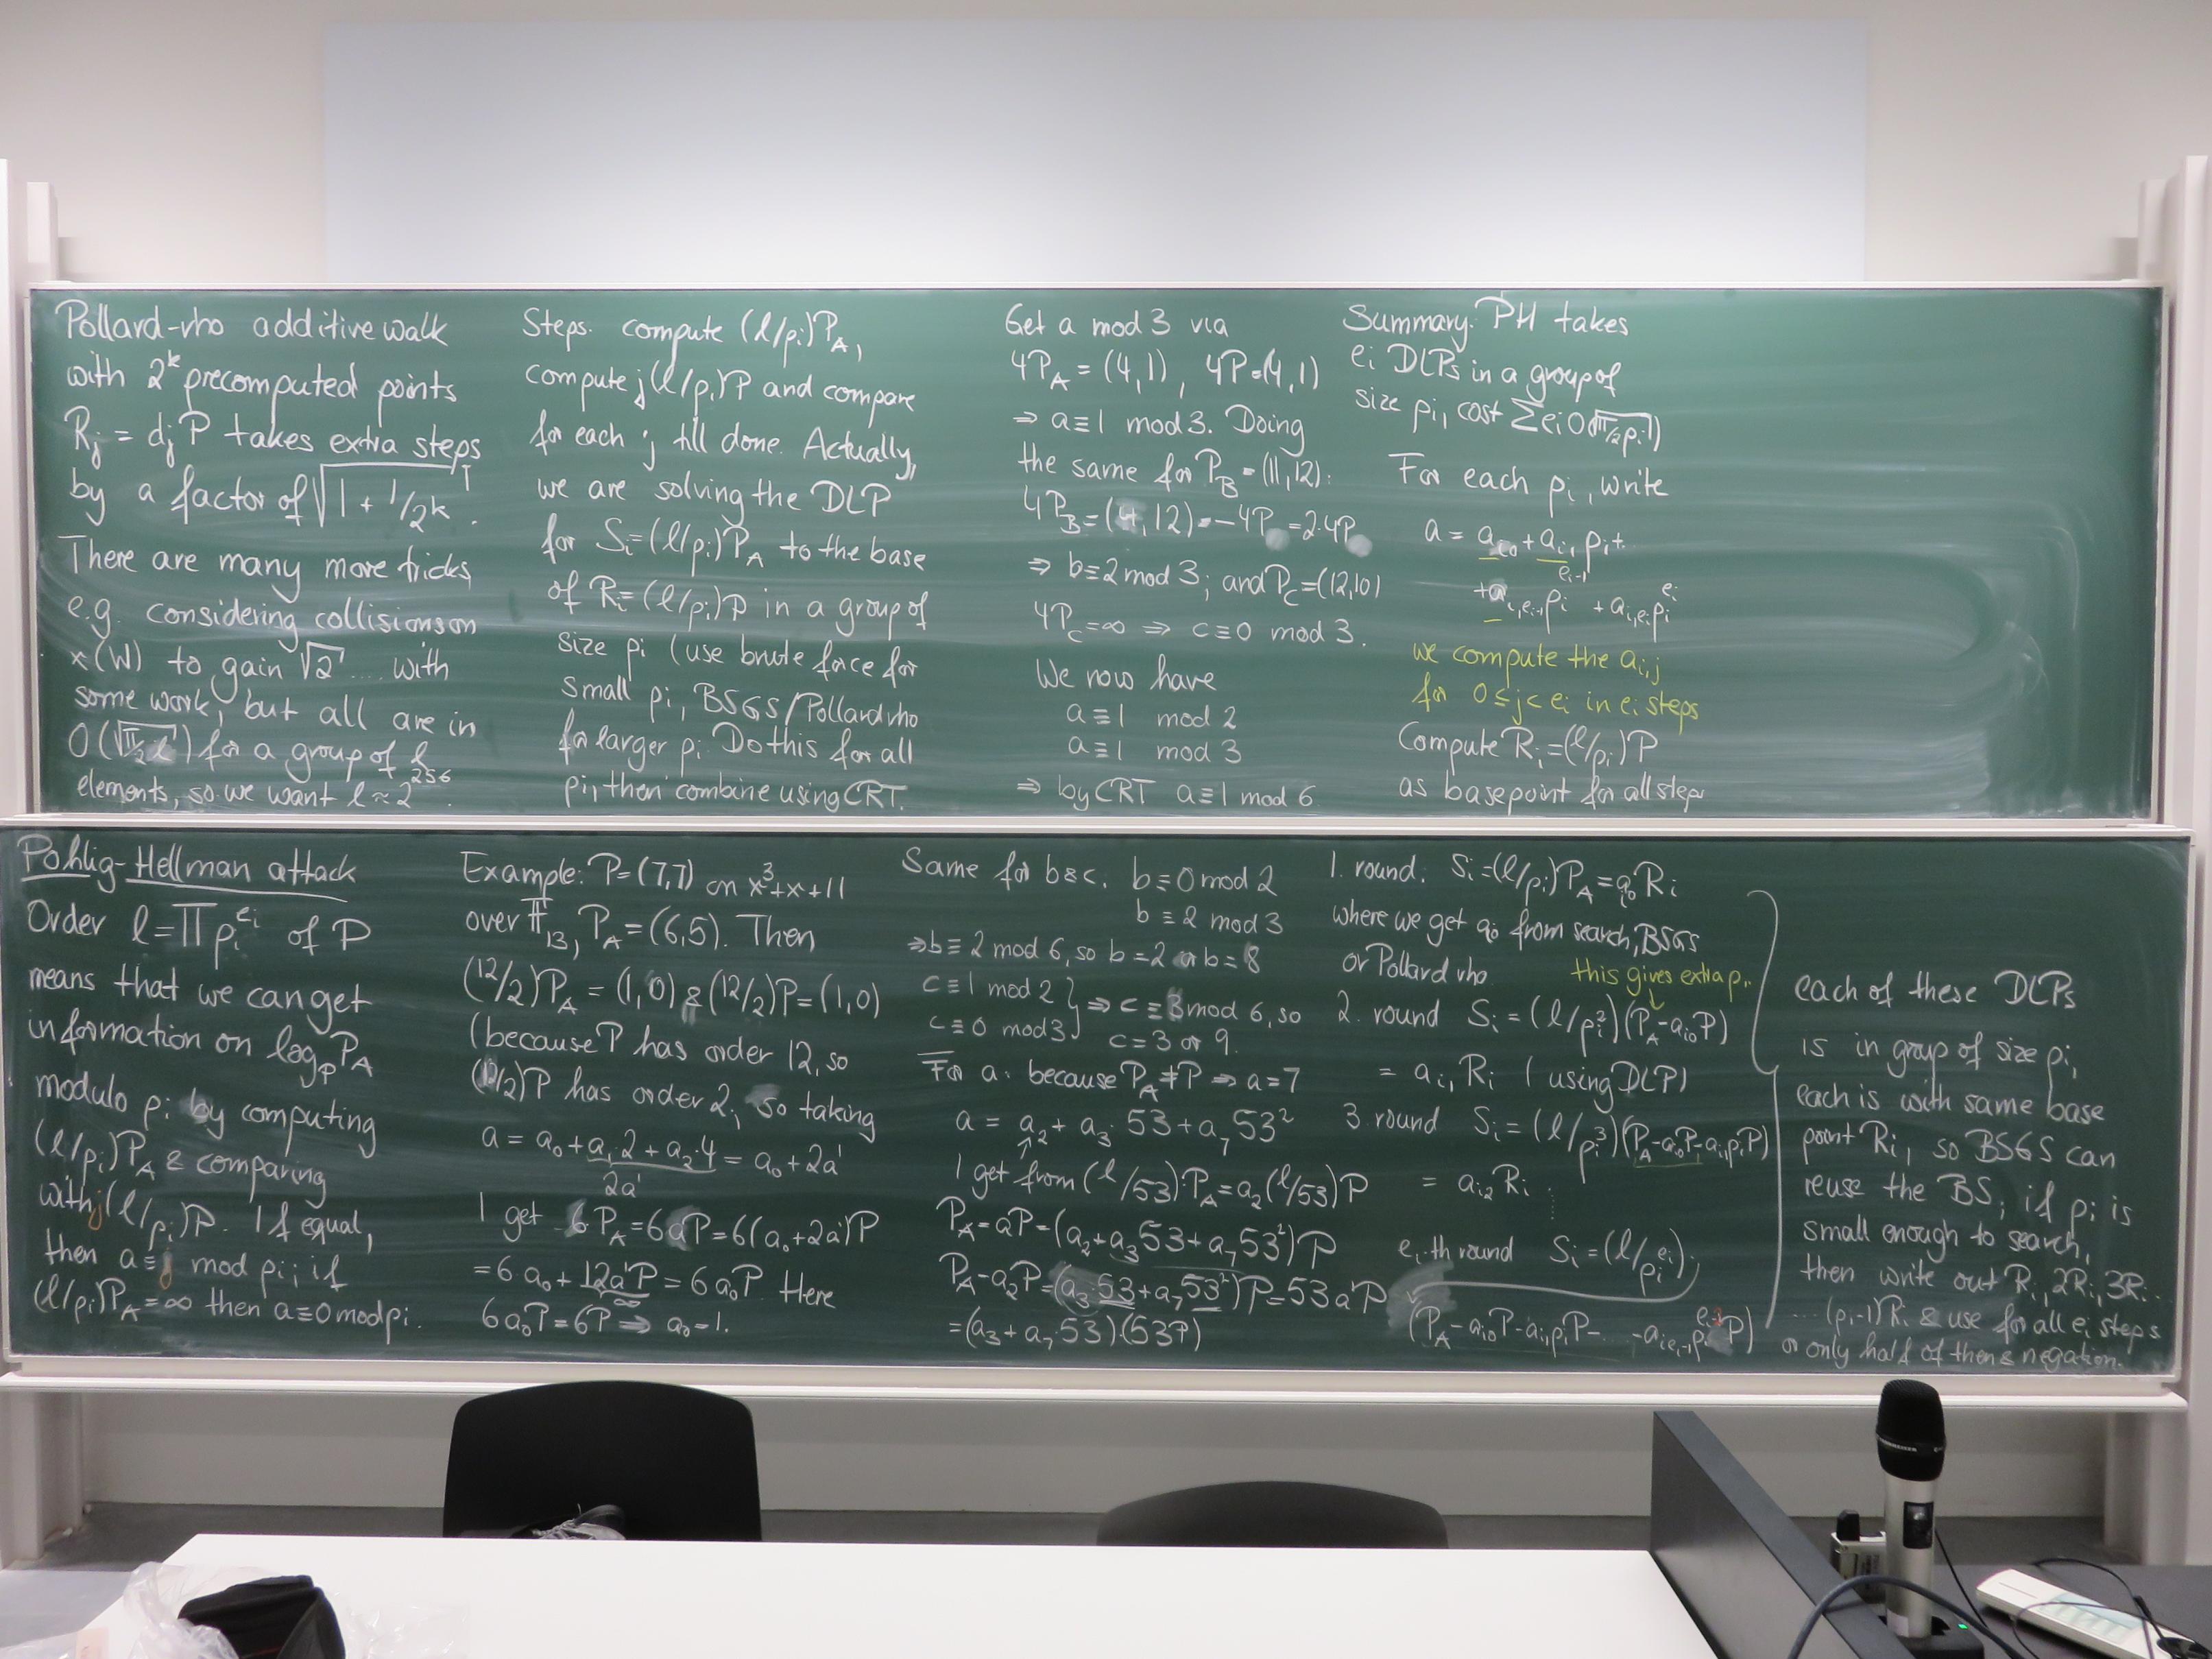 Pollard-rho additive walk
with 2^k precomputed points
R_j = d_j P takes extra steps
by a factor of √(1 + 1/2^k).
There are many more tricks,
e.g. considering collisions on
x(W) to gain √2 .... with
some work, but all are in
O(√(π/2 l)) for a group of l
elements, so we want l ≈ 2^256.
Steps. compute (l/p_i)P_A,
compute j(l/p_i)P and compare
for each j till done. Actually,
we are solving the DLP
for S_i = (l/p_i)P_A to the base
of R_i = (l/p_i)P in a group of
size p_i (use brute force for
small p_i, BSGS/Pollard rho
for larger p_i. Do this for all
p_i, then combine using CRT.
Get a mod 3 via
4P_A = (4,1), 4P = (4,1)
⇒ a ≡ 1 mod 3. Doing
the same for P_B = (11,12):
4P_B = (4,12) = -4P = 2·4P
⇒ b ≡ 2 mod 3; and P_C = (12,10)
4P_C = ∞ ⇒ c ≡ 0 mod 3.
We now have
a ≡ 1 mod 2
a ≡ 1 mod 3
⇒ by CRT a ≡ 1 mod 6
Summary: PH takes
e_i DLPs in a group of
size p_i, cost Σ e_i O(√(π/2 p_i))
For each p_i, write
a = a_i0 + a_i1 p_i + ..
+ a_i,e_i-1 p_i^(e_i-1) + a_i,e_i p_i^e_i
we compute the a_i,j
for 0 ≤ j < e_i in e_i steps
Compute R_i = (l/p_i)P
as basepoint for all steps
Pohlig-Hellman attack
Order l = Π p_i^e_i of P
means that we can get
information on log_P P_A
modulo p_i by computing
(l/p_i)P_A & comparing
with j(l/p_i)P. If equal,
then a ≡ j mod p_i; if
(l/p_i)P_A = ∞ then a ≡ 0 mod p_i.
Example: P = (7,7) on x³+x+11
over F_13, P_A = (6,5). Then
(12/2)P_A = (1,0) & (12/2)P = (1,0)
(because P has order 12, so
(12/2)P has order 2, so taking
a = a_0 + a_1·2 + a_2·4 = a_0 + 2a'
2a'
I get 6·P_A = 6aP = 6(a_0+2a')P
= 6a_0 + 12a'P = 6a_0P. Here
∞
6a_0P = 6P ⇒ a_0 = 1.
Same for b & c. b ≡ 0 mod 2
b ≡ 2 mod 3
⇒ b ≡ 2 mod 6, so b = 2 or b = 8
c ≡ 1 mod 2
c ≡ 0 mod 3 } ⇒ c ≡ 3 mod 6, so
c = 3 or 9.
For a: because P_A ≠ P ⇒ a = 7
a = a_2 + a_3·53 + a_7 53²
I get from (l/53)·P_A = a_2(l/53)P
P_A = aP = (a_2 + a_3 53 + a_7 53²)P
P_A - a_2P = (a_3·53 + a_7 53²)P = 53a'P
= (a_3 + a_7·53)·(53P)
1. round: S_i = (l/p_i)P_A = a_i0 R_i
where we get a_i0 from search, BSGS
or Pollard rho
this gives extra p_i
2. round S_i = (l/p_i²)(P_A - a_i0 P)
= a_i1 R_i (using DLP)
3. round S_i = (l/p_i³)(P_A - a_i0 P - a_i1 p_i P)
= a_i2 R_i
e_i-th round S_i = (l/p_i^e_i)·
(P_A - a_i0 P - a_i1 p_i P - .. - a_ie_i-1 p_i^(e_i-1) P)
each of these DLPs
is in group of size p_i,
each is with same base
point R_i, so BSGS can
reuse the BS; if p_i is
small enough to search,
then write out R_i, 2R_i, 3R_i..
.... (p_i-1)R_i & use for all e_i steps
or only half of then & negation.